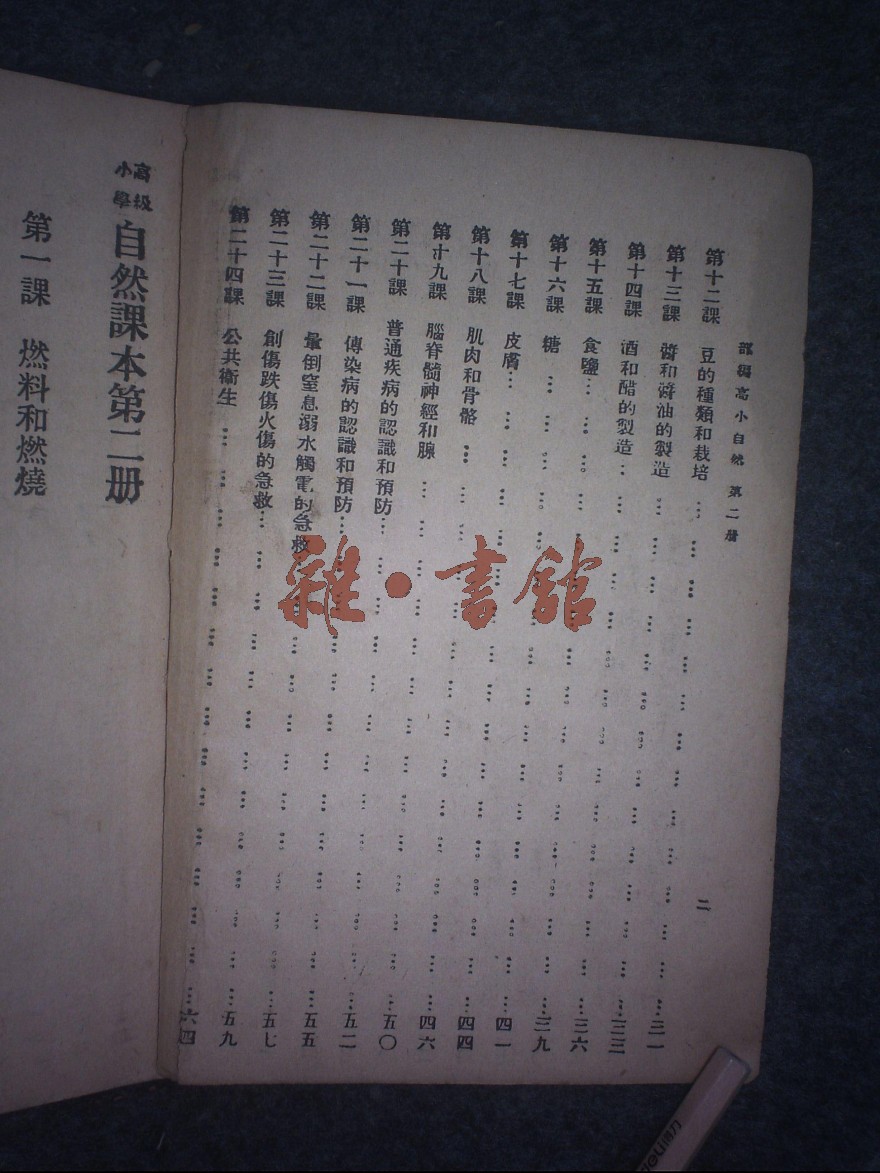 部編高小自然 第二册
二
第十二課 豆的種類和栽培 …… 三一
第十三課 醬和醬油的製造 …… 三三
第十四課 酒和醋的製造 …… 三六
第十五課 食鹽 …… 三九
第十六課 糖 …… 四一
第十七課 皮膚 …… 四四
第十八課 肌肉和骨骼 …… 四六
第十九課 腦脊髓神經和腺 …… 五〇
第二十課 普通疾病的認識和預防 …… 五二
第二十一課 傳染病的認識和預防 …… 五五
第二十二課 暈倒窒息溺水觸電的急救 …… 五七
第二十三課 創傷跌傷火傷的急救 …… 五九
第二十四課 公共衛生 …… 六四
高級小學 自然課本第二册
第一課 燃料和燃燒
雜·書館
deli得力